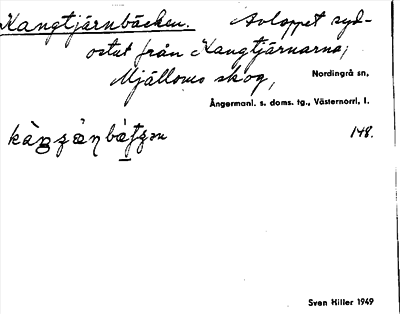 Kangtjärnbäcken. Avloppet syd-
ostut från Kangtjärnarna,
Mjälloms skog, Nordingrå sn,
Ångermanl. s. doms. tg., Västernorrl. l.
148.
Sven Hiller 1949